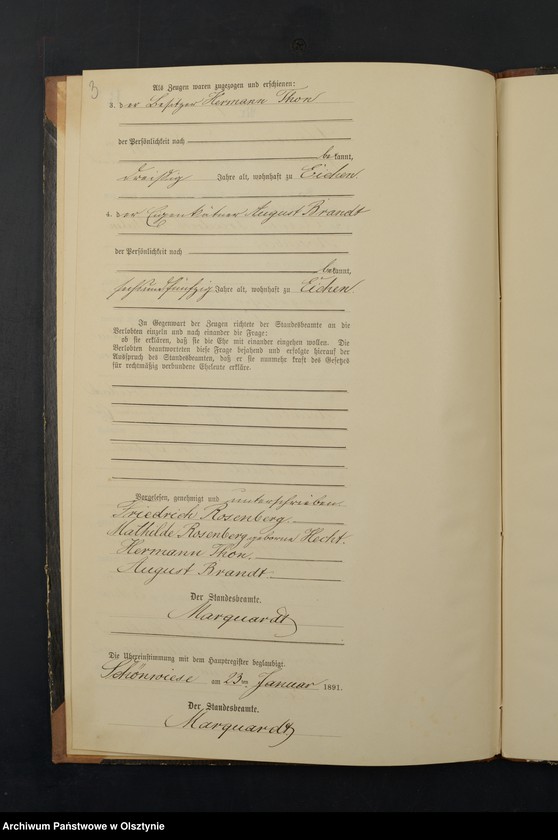 3
Als Zeugen waren zugezogen und erschienen:
3. der Besitzer Hermann Thon
der Persönlichkeit nach
bekannt,
dreißig Jahre alt, wohnhaft zu Eichen
4. der Eigenkätner August Brandt
der Persönlichkeit nach
bekannt,
sechsundfünfzig Jahre alt, wohnhaft zu Eichen
In Gegenwart der Zeugen richtete der Standesbeamte an die
Verlobten einzeln und nach einander die Frage:
ob sie erklären, daß sie die Ehe mit einander eingehen wollen. Die
Verlobten beantworteten diese Frage bejahend und erfolgte hierauf der
Ausspruch des Standesbeamten, daß er sie nunmehr kraft des Gesetzes
für rechtmäßig verbundene Eheleute erkläre.
Vorgelesen, genehmigt und unterschrieben
Friedrich Rosenberg.
Mathilde Rosenberg geborne Hecht.
Hermann Thon.
August Brandt.
Der Standesbeamte.
Marquardt
Die Uebereinstimmung mit dem Hauptregister beglaubigt.
Schönwiese am 23ten Januar 1891.
Der Standesbeamte.
Marquardt
Archiwum Państwowe w Olsztynie